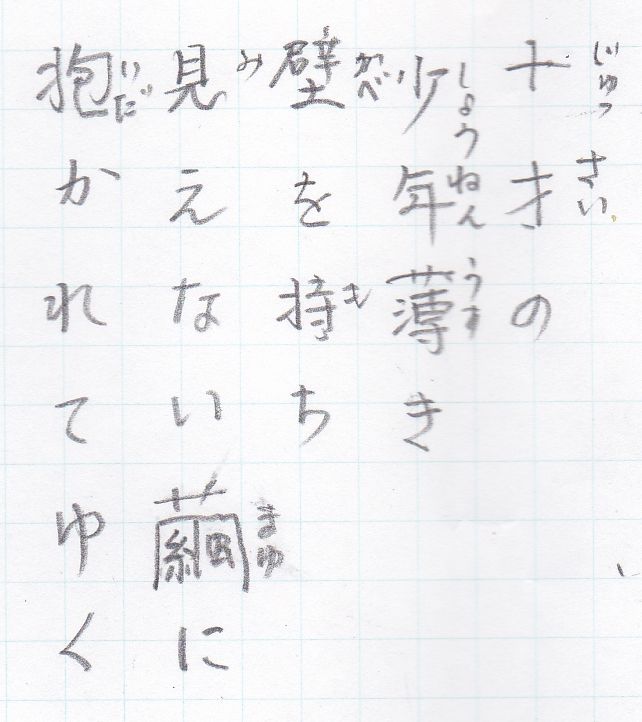 十才の
少年薄き
壁を持ち
見えない繭に
抱かれてゆく
じゅっさい
しょうねん
うす
かべ
も
み
まゆ
いだ